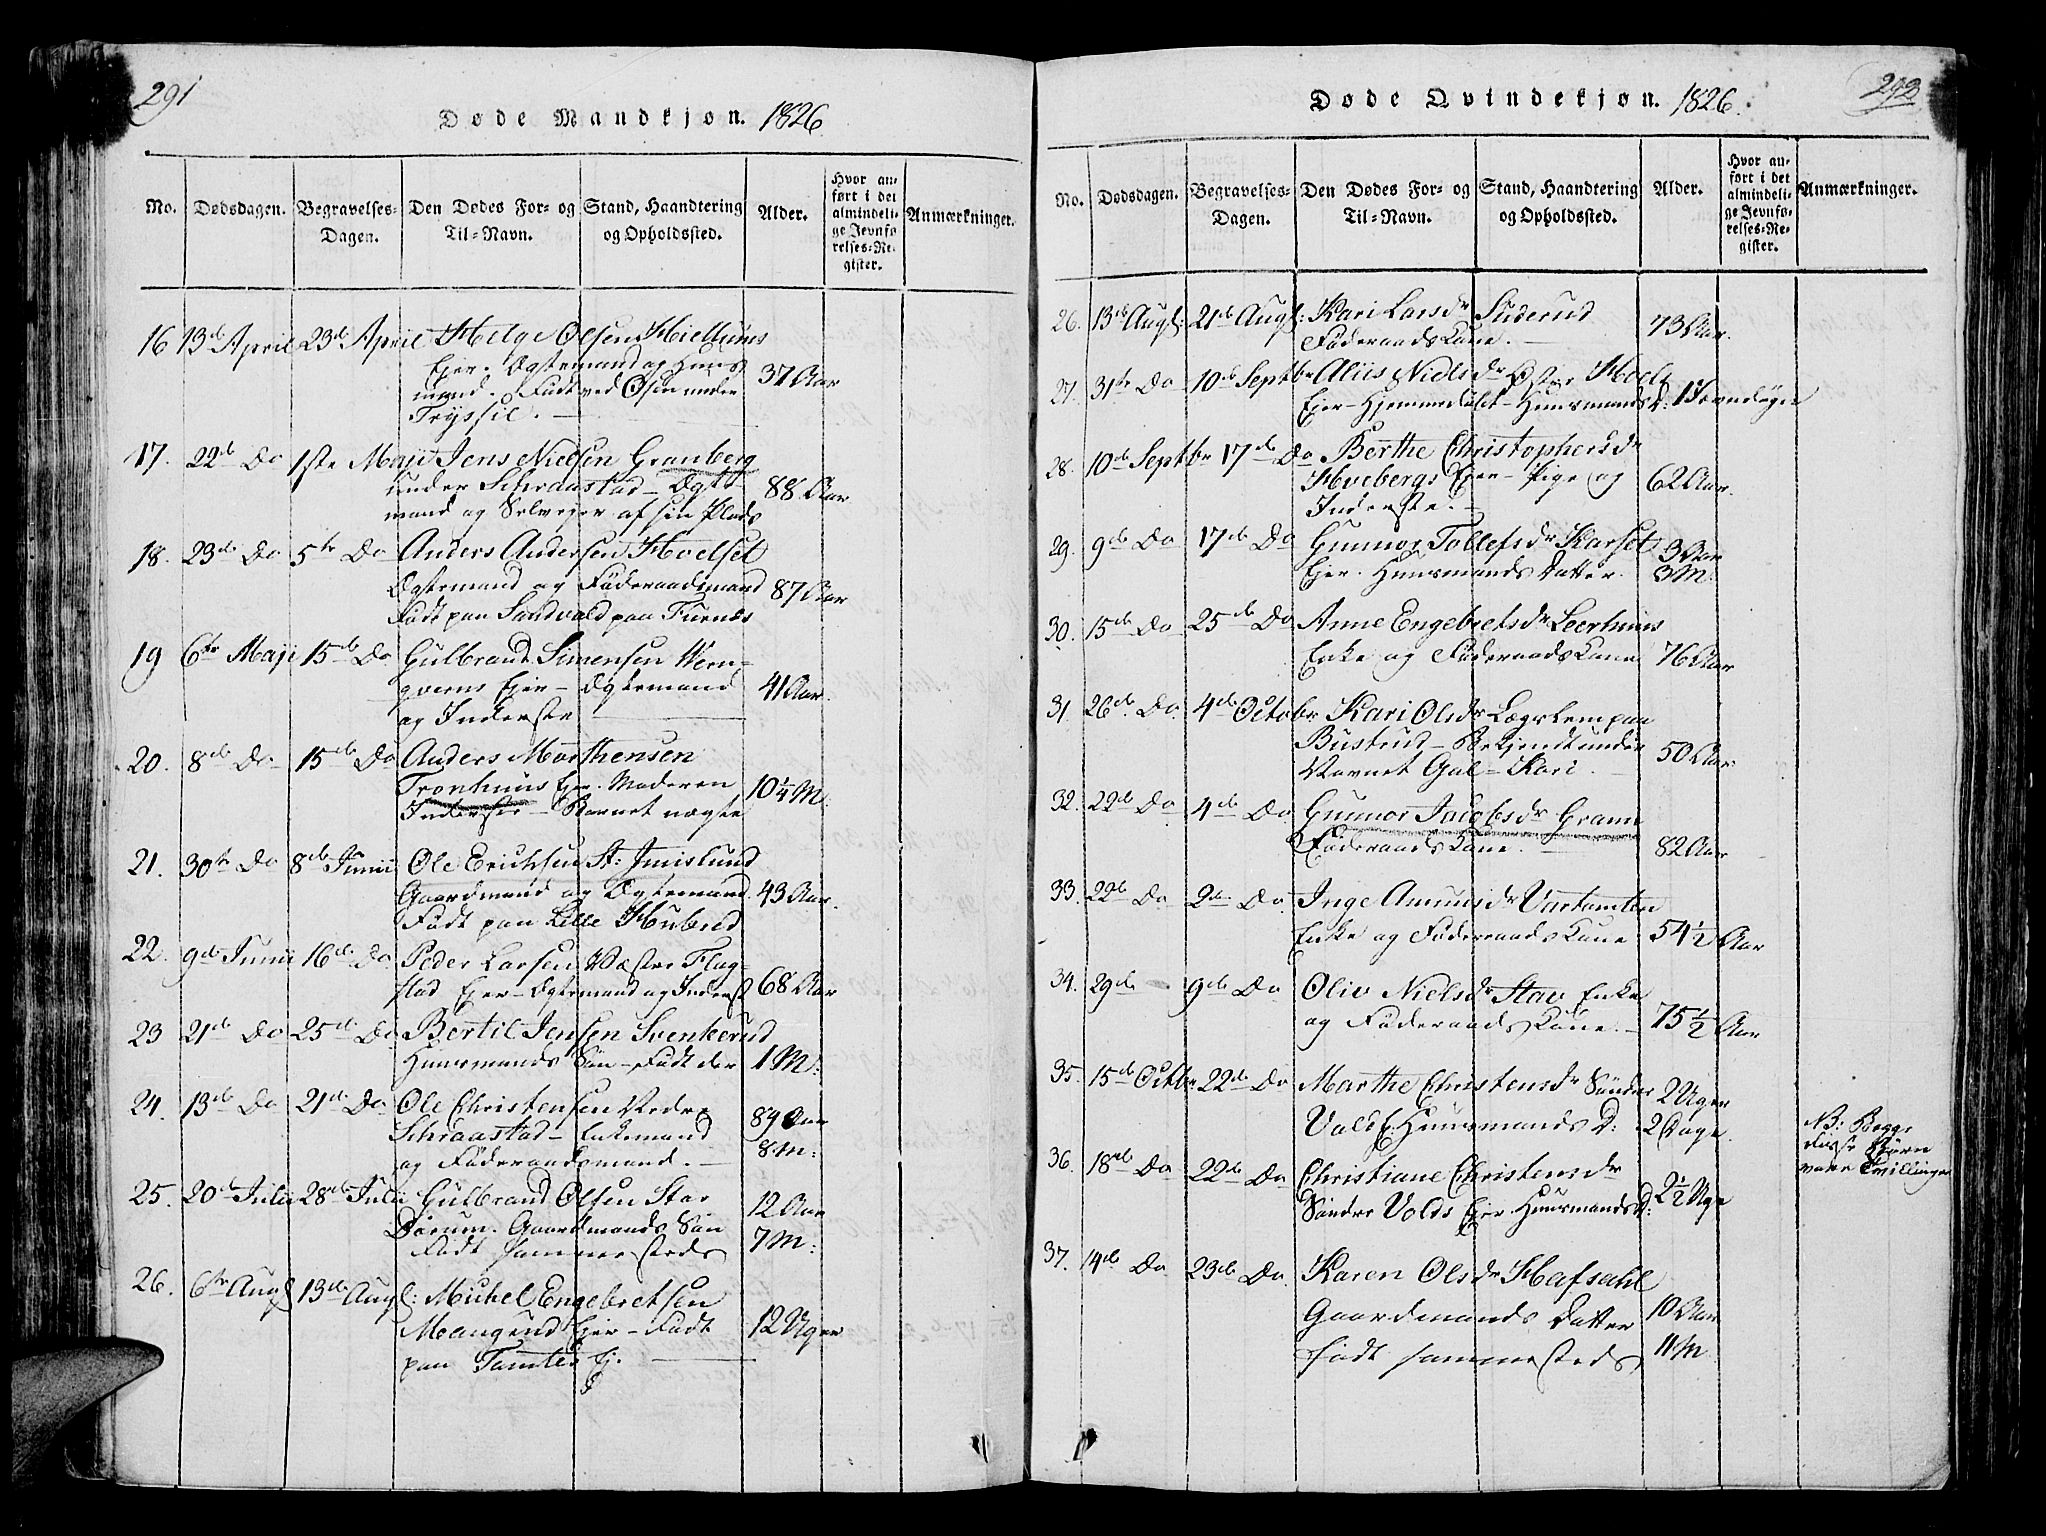 291
Døde Mandkjøn. 1826
No. Dødsdagen. Begravelses-Dagen. Den Dødes For- og Til-Navn. Stand, Haandtering og Opholdssted. Alder. Hvor anført i det almindelige Jevnførelses-Register. Anmærkninger.
16 13de April 23de April Helge Olsen Hiellums
Ejer. Ægtemand og Huus
mand. Født ved Osen under 37 Aar
Tryssil.
17. 22de Do 1ste Maji Jens Nielsen Granberg
under Schraastad - Ægte 88 Aar
mand og Selvejer af sin Plads
18. 23de Do 5te Do Anders Andersen Hoelset
Ægtemand og Føderaadsmand 87 Aar
Født paa Sandvold paa Furnæs
19 6te Maji 15de Do Gulbrand Simensen Wern-
qverns Ejer - Ægtemand 41 Aar.
og Inderste
20. 8de Do 15de Do Anders Marthensen
Tronhuus Ejer. Moderen 10 1/4 M:
Inderste - Barnet uægte
21. 30te Do 8de Junii Ole Erichsen St: Imislund
Gaardmand og Ægtemand 43 Aar.
Født paa Lille Huberd
22. 9de Junii 16de Do. Peder Larsen Væster Flag-
stad Ejer - Ægtemand og Inderst 68 Aar
23 21de Do 25de Do Bertil Jensen Svenkerud
Huusmands Søn - Født der 1 M:
24. 13de Do 21de Do. Ole Christensen Nedre
Schraastad - Enkemand 89 Aar
og Føderaadsmand. 8 M:
25. 20de Julii 28de Julii Gulbrand Olsen Stor
Dørum. Gaardmands Søn 12 Aar
Født sammesteds 7 M:
26. 6te Augs 13de Augs: Michel Engebretsen
Mangerud Ejer - Født 12 Uger
paa Tomter Ej.
292
Døde Qvindekjøn. 1826.
No. Dødsdagen. Begravelses-Dagen. Den Dødes For- og Til-Navn. Stand, Haandtering og Opholdssted. Alder. Hvor anført i det almindelige Jevnførelses-Register. Anmærkninger.
26. 13de Augs: 21de Augs: Kari Larsdr Suderud
Føderaads Kone. 73 Aar.
27. 31te Do 10de Septbr Aliis Nielsdr Øster Hoel
Ejer - Hjemmedøbt - Huusmands D: 1 Jevndøgn
28. 10de Septbr 17de Do Berthe Christophersdr
Hvebergs Ejer - Pige og 62 Aar.
Inderste.
29. 9de Do 17de Do Gunnor Tollefsdr Karset 3 Aar
Ejer. Huusmands Datter. 3 M:
30. 15de Do 25de Do Anne Engebretsdr Leerhuus
Enke og Føderaads Kone 76 Aar
31. 26de Do. 4de Octobr Kari Olsdr Lægslem paa
Bustrud - Bekjendt under 50 Aar
Navnet Gal-Kari.
32. 22de Do 4de Do Gunnor Jacobsdr Graun
Føderaads Kone. 82 Aar
33. 22de Do 2de Do. Inge Amunsdr Vartomten
Enke og Føderaads Kone 54 1/2 Aar
34. 29de 9de Do Oliv Nielsdr Stav Enke
og Føderaads Kone. 75 1/2 Aar
35. 15de Octbr 22de Do Marthe Christensdr Sønder 2 Uger
Vold E. Huusmands D: 2 Dage.
NB: Begge
disse Børn
vare Tvillinger
36. 18de Do 22de Do Christiane Christensdr
Sønder Volds Ejer Huusmands D: 2 1/2 Uge
37. 14de Do. 23de Do. Karen Olsdr Hafsahl
Gaardmands Datter 10 Aar
født sammesteds 11 M